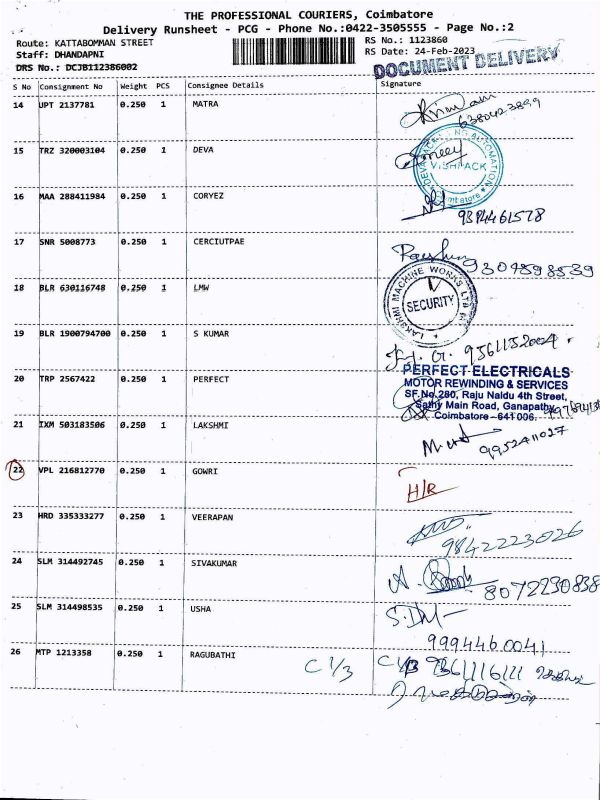 THE PROFESSIONAL COURIERS, Coimbatore
Delivery Runsheet - PCG - Phone No.:0422-3505555 - Page No.:2
Route: KATTABOMMAN STREET
RS No.: 1123860
Staff: DHANDAPNI
RS Date: 24-Feb-2023
DRS No.: DCJB112386002
DOCUMENT DELIVERY
S No Consignment No Weight PCS Consignee Details Signature
14 UPT 2137781 0.250 1 MATRA
6380423899
15 TRZ 320003104 0.250 1 DEVA
VISHPACK
16 MAA 288411984 0.250 1 CORYEZ
9344461578
17 SNR 5008773 0.250 1 CERCIUTPAE
9304898539
18 BLR 630116748 0.250 1 LMW
LAKSHMI MACHINE WORKS LTD
SECURITY
19 BLR 1900794700 0.250 1 S KUMAR
20 TRP 2567422 0.250 1 PERFECT
PERFECT ELECTRICALS
MOTOR REWINDING & SERVICES
SF.No.280, Raju Naidu 4th Street,
Sathy Main Road, Ganapathy,
Coimbatore - 641 006.
21 IXM 503183506 0.250 1 LAKSHMI
9952411027
22 VPL 216812770 0.250 1 GOWRI
H/R
23 HRD 335333277 0.250 1 VEERAPAN
9842223026
24 SLM 314492745 0.250 1 SIVAKUMAR
8072230838
25 SLM 314498535 0.250 1 USHA
9994460041
26 MTP 1213358 0.250 1 RAGUBATHI
C 1/3